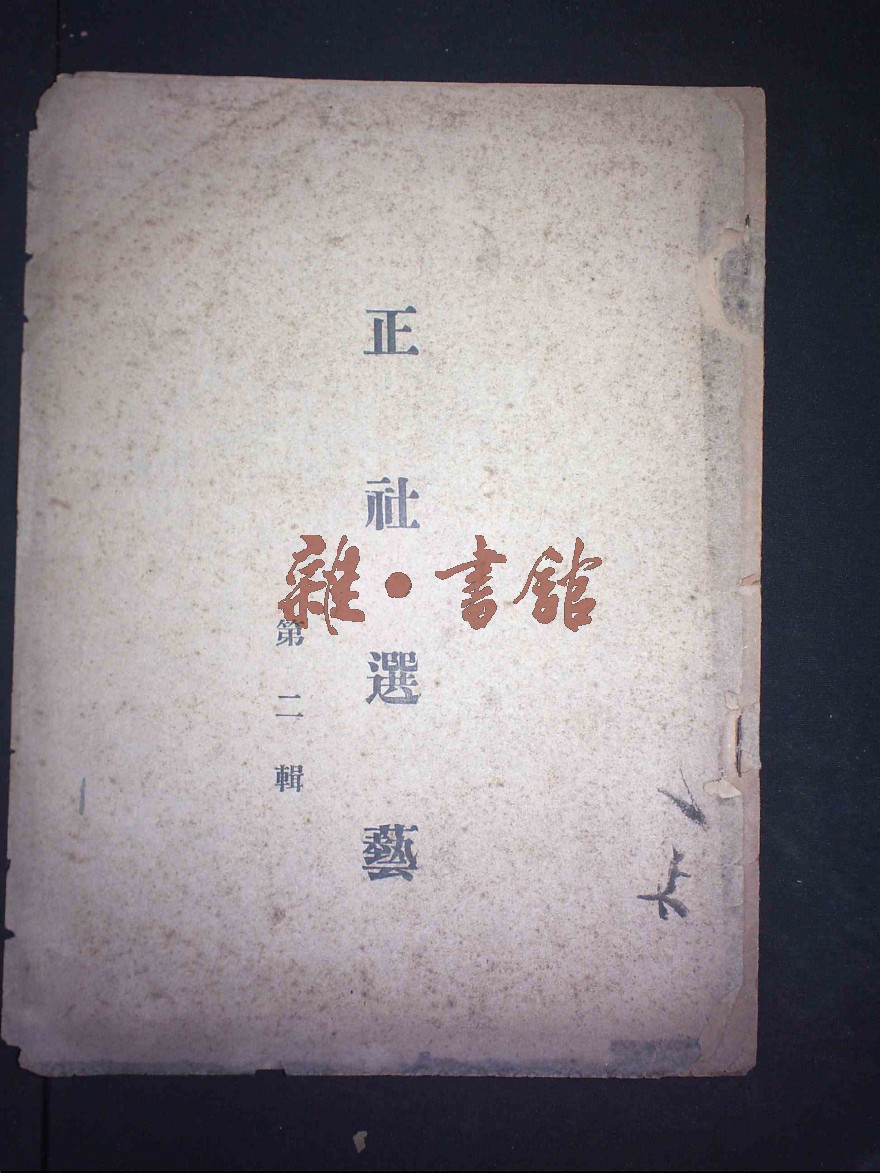 正社選藝
第二輯
雜·書館